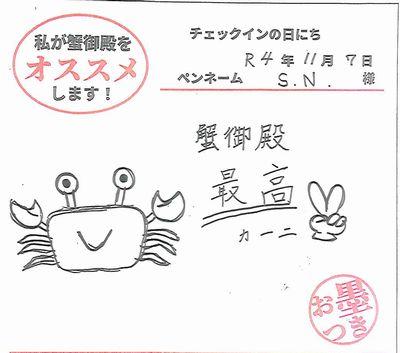 私が蟹御殿を
オススメ
します！
チェックインの日にち
R4年11月7日
ペンネーム S.N. 様
蟹御殿
最高
カーニ
お墨
つき